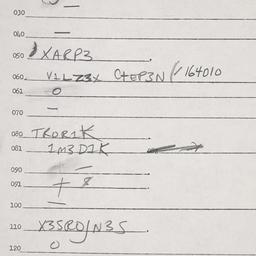 030 —
040 —
050 XARP3
060 V1LZ3X CTEP3N 164010
061 0
070 —
080 TROR1K
081 1M3D1K
090 —
091 + 8
100 —
110 X3SROJN3S
120 0